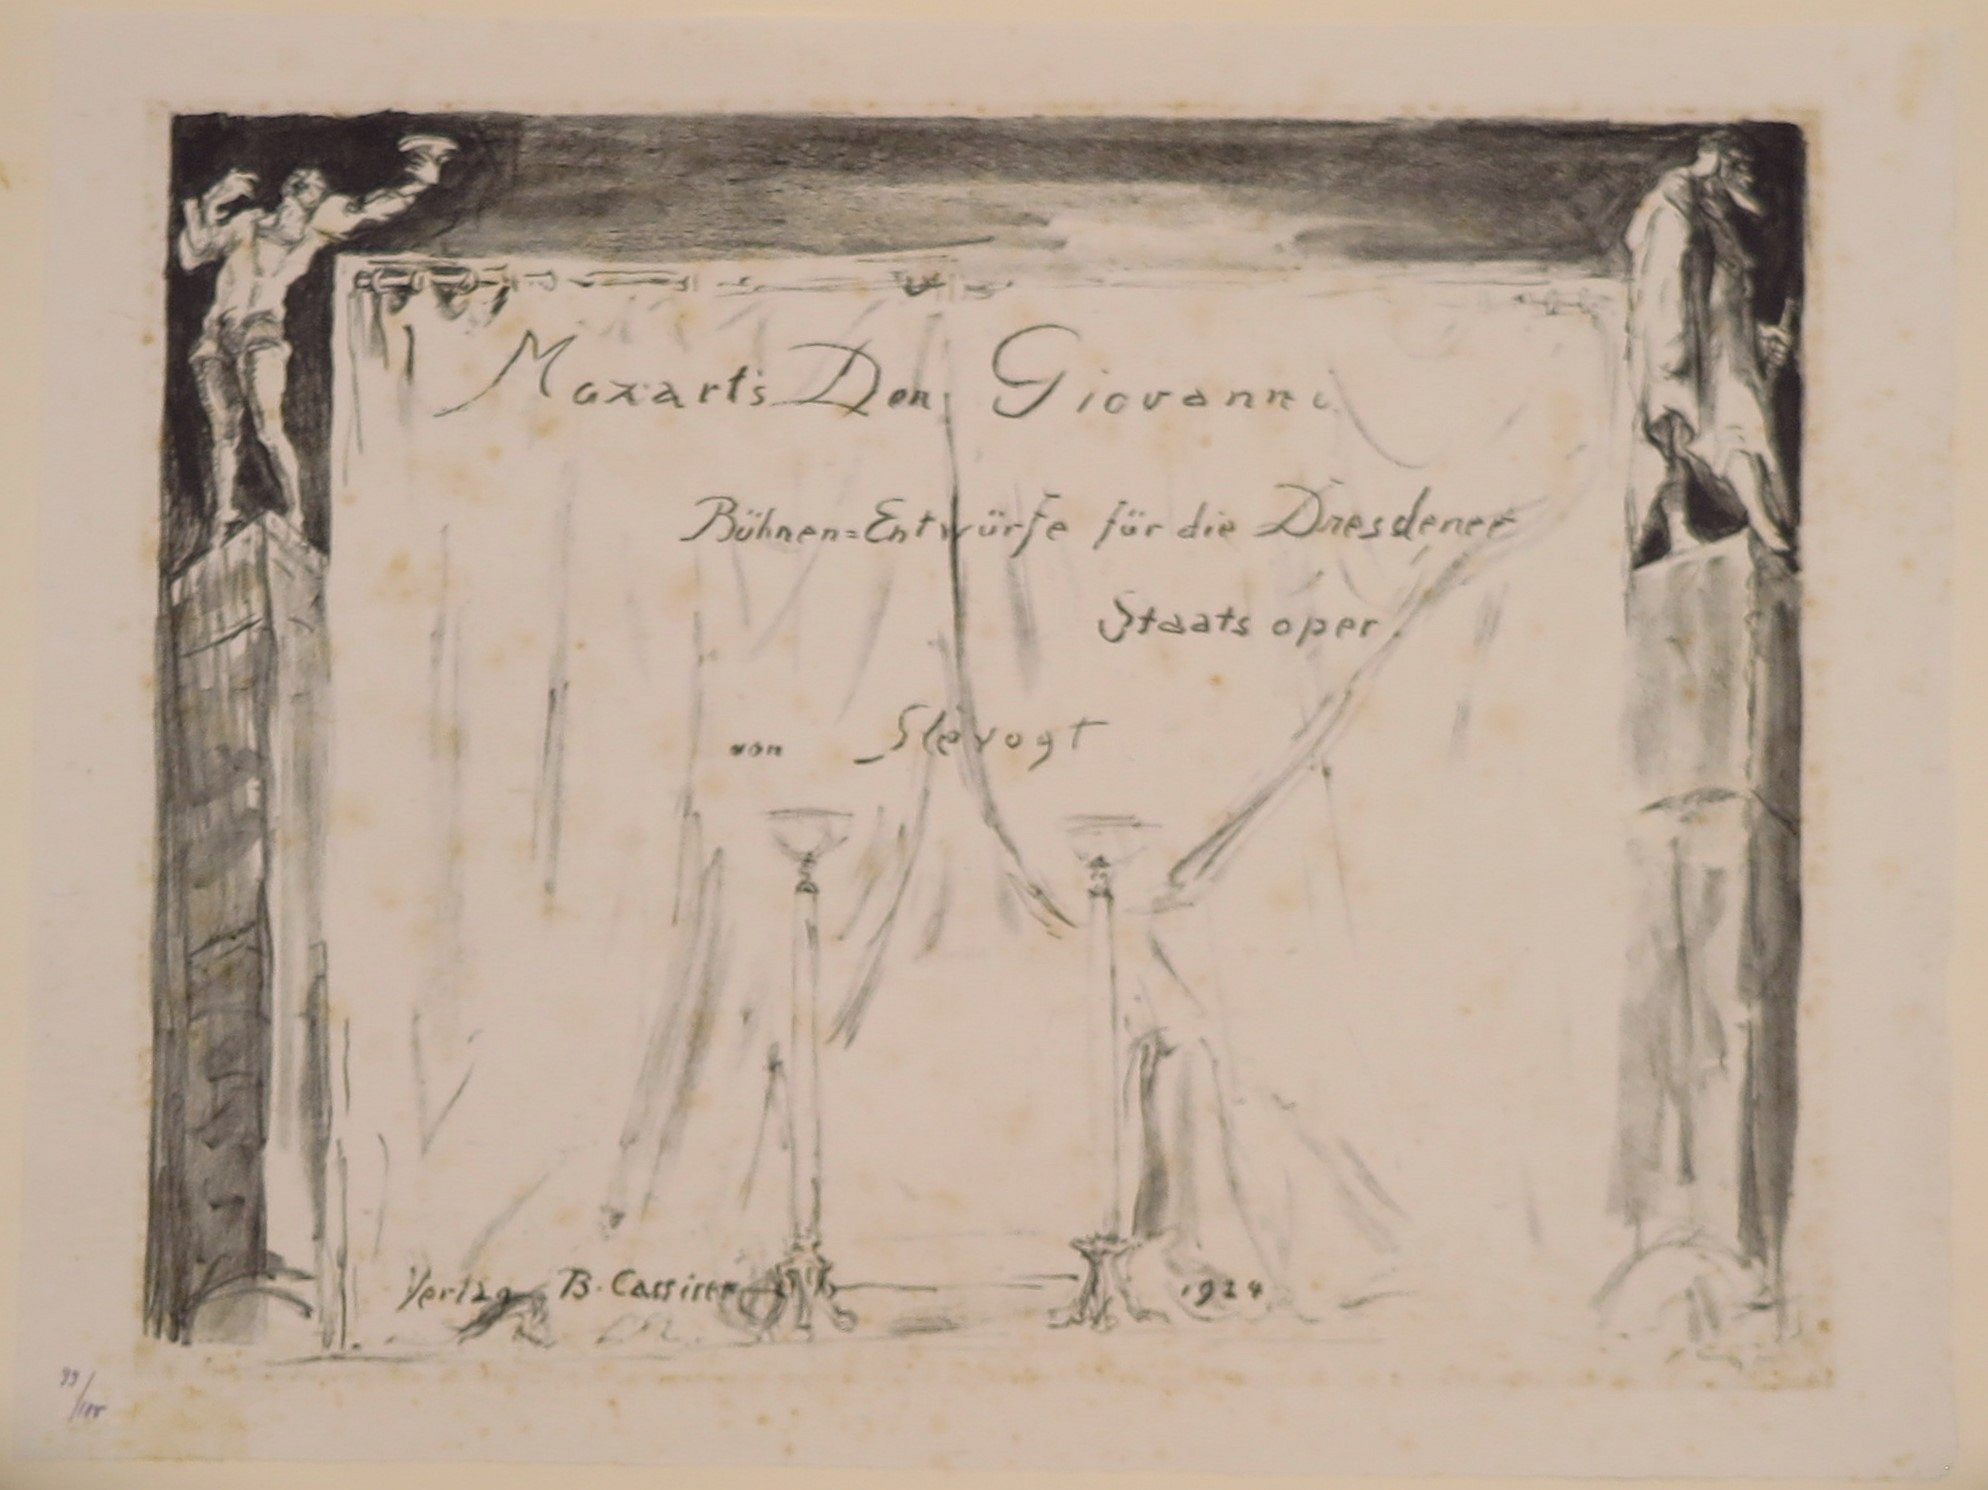 Mozart's Don Giovanni
Bühnen=Entwürfe für die Dresdener
Staatsoper.
von Slevogt
Verlag B. Cassirer 1924
99/100